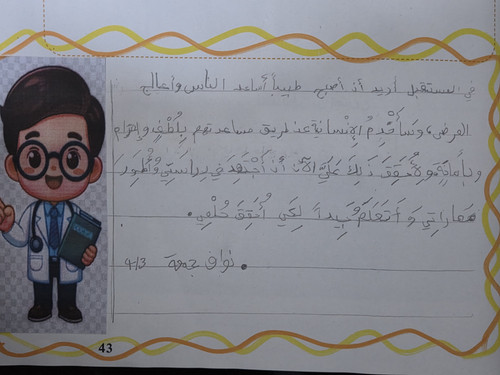 في لمستقبل أريد أن أصبح طبيباً أساعد الناس وأعالج
المرضى، وَسَأَخْدِمُ الإِنْسانِيَّة عن طريق مساعدتهم بِلُطْفٍ وإحترام
وبِأَمانَةٍ وَلِأُحَقِّقَ ذَلِكَ عَلَيَّ الآنَ أَنْ أَجْتَهِدَ في دِراسَتِي وَأُطَوِّرَ
مَهاراتِي وَ أَتَعَلَّمَ جَيِداً لِكَي أُحَقِقَ حُلْمِي.
نواف جمعة 4/3
DOCTOR
43